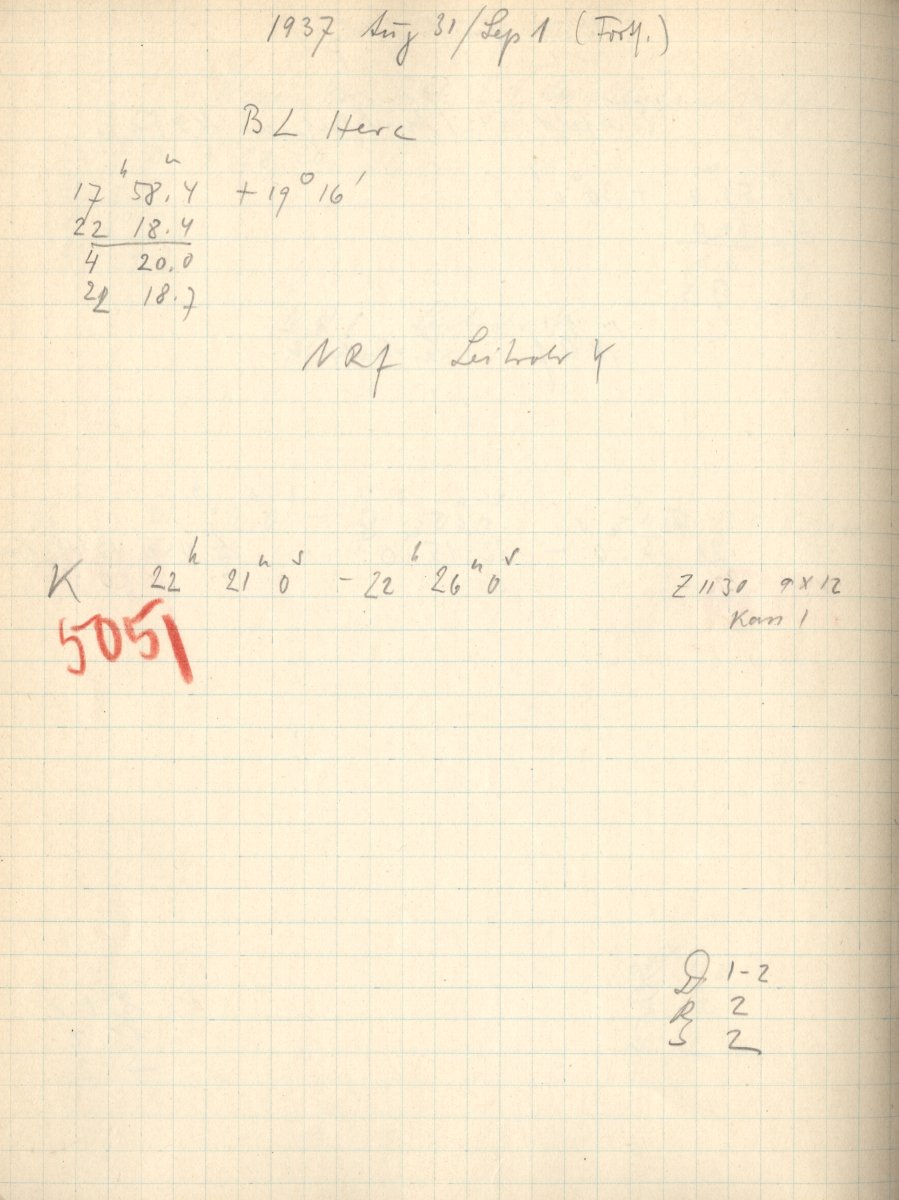 1937 Aug 31/Sep 1 (Forts.)
BL Herc
17h 58.4m + 19° 16'
22 18.4
4 20.0
22 18.7
Leitrohr K
K 22h 21m 0s - 22h 26m 0s Z 1130 9 x 12
5051 Kass 1
D 1-2
R 2
S 2